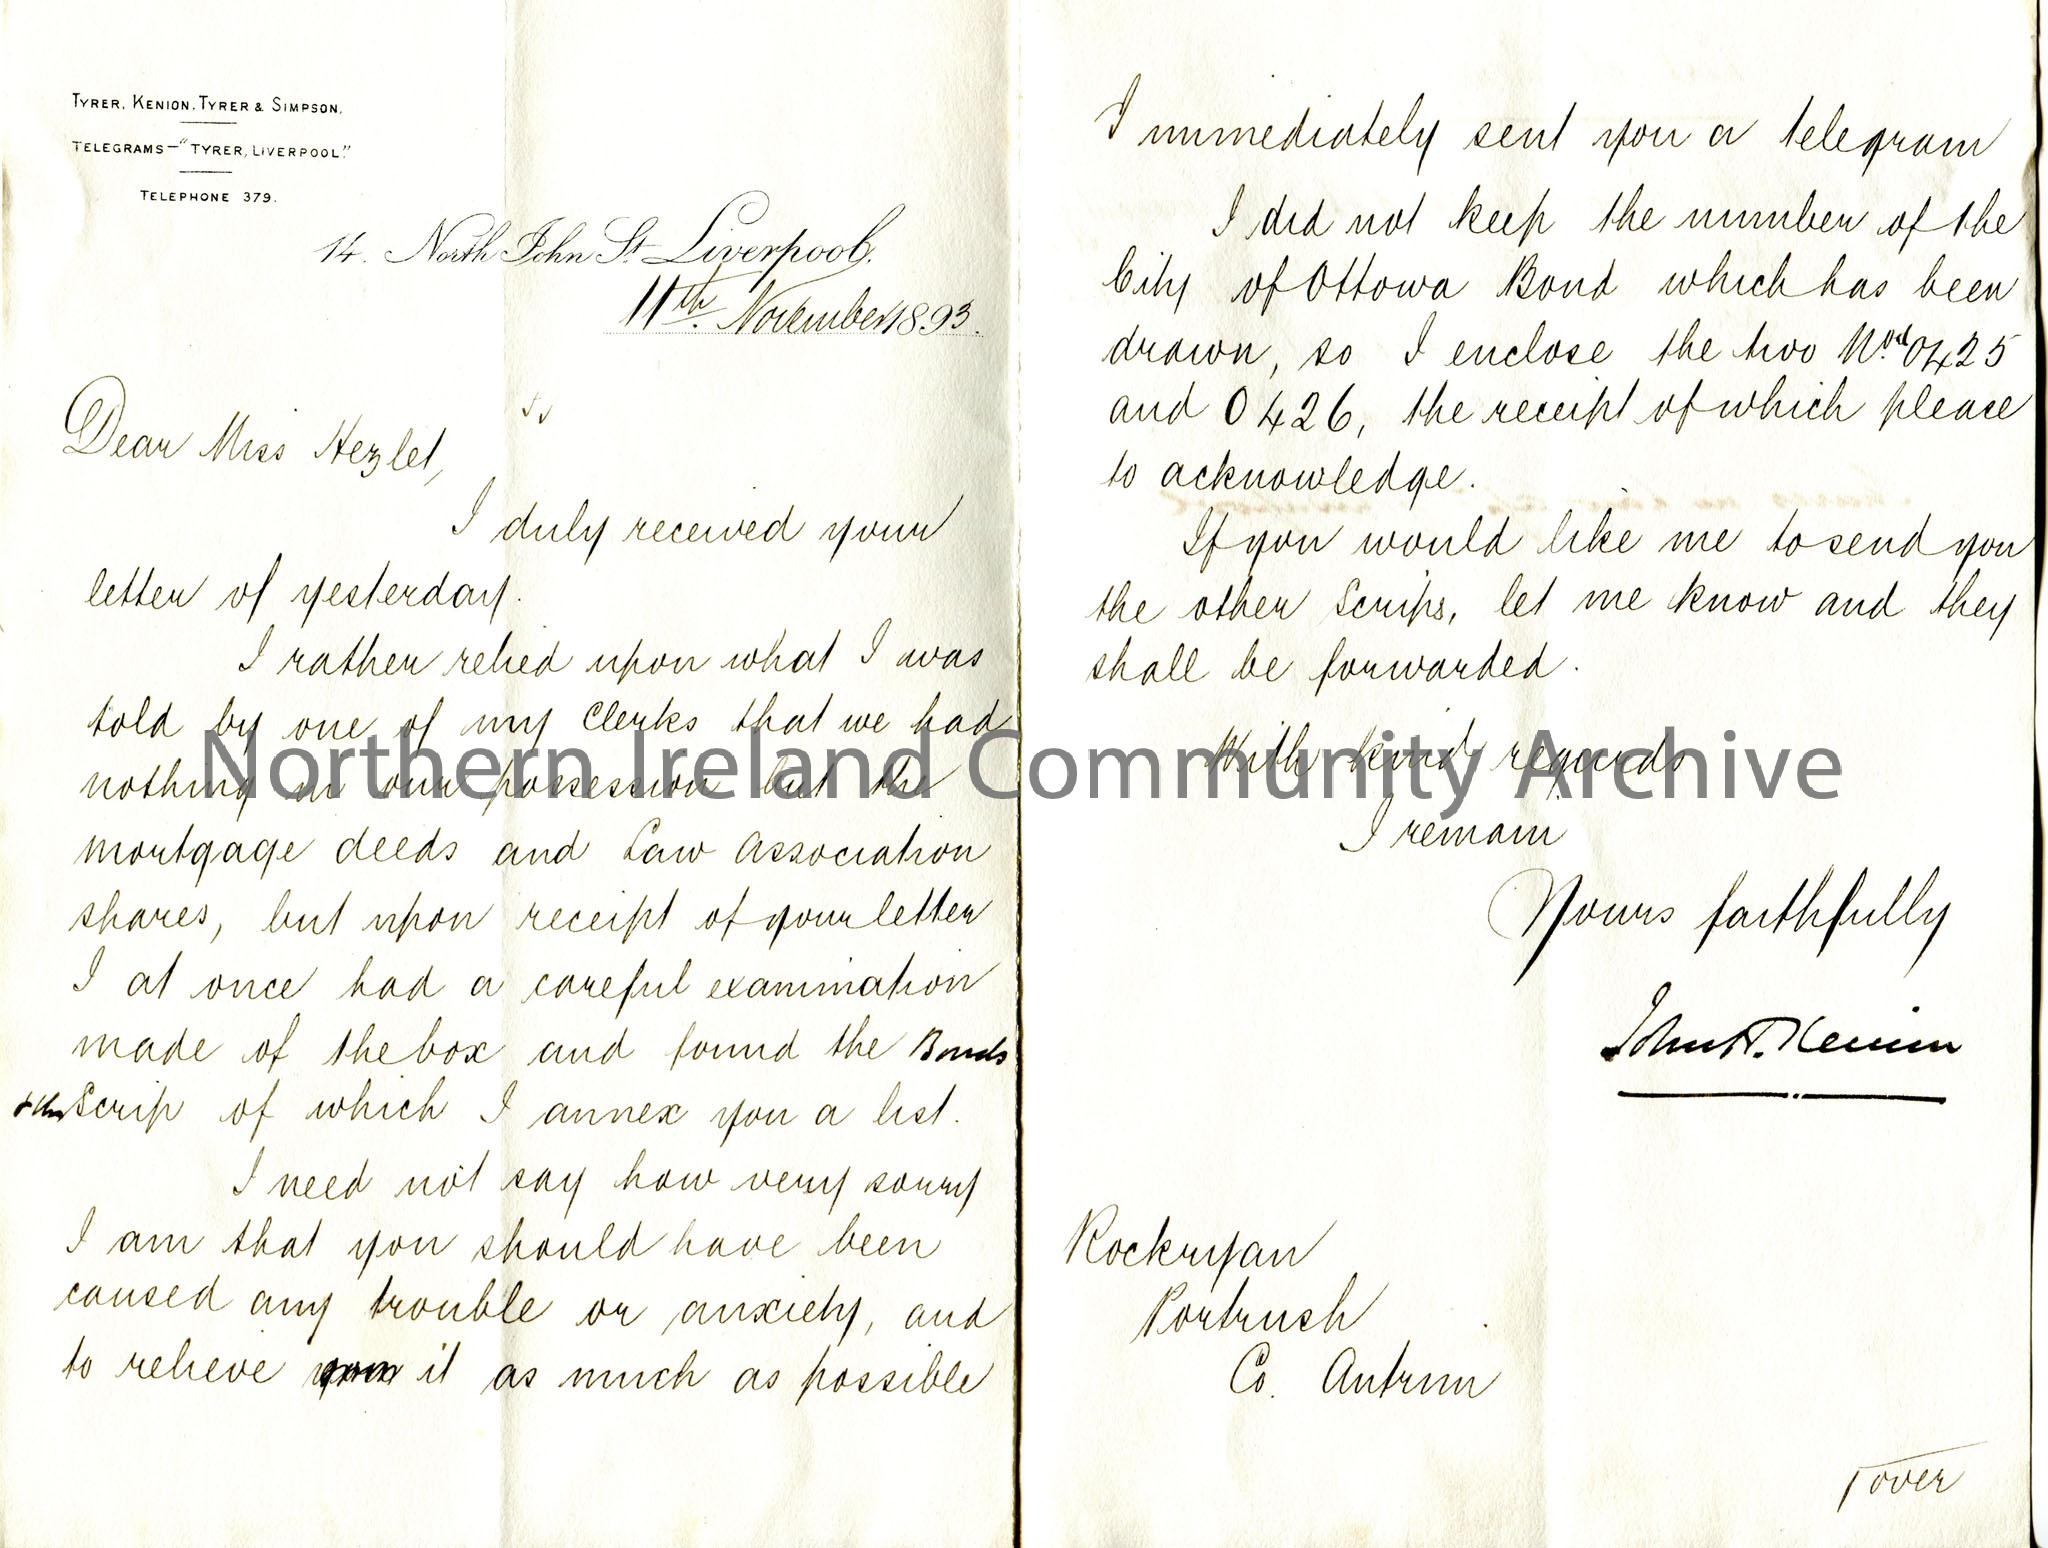 TYRER, KENION, TYRER & SIMPSON.
TELEGRAMS—"TYRER, LIVERPOOL."
TELEPHONE 379.
14. North John St. Liverpool.
11th. November 1893.
Dear Miss Hezlet,
I duly received your
letter of yesterday.
I rather relied upon what I was
told by one of my Clerks that we had
nothing in our possession but the
mortgage deeds and Law Association
shares, but upon receipt of your letter
I at once had a careful examination
made of the box and found the Bonds
& the Scrip of which I annex you a list.
I need not say how very sorry
I am that you should have been
caused any trouble or anxiety, and
to relieve it as much as possible
I immediately sent you a telegram
I did not keep the number of the
City of Ottowa Bond which has been
drawn, so I enclose the two Nos 0425
and 0426, the receipt of which please
to acknowledge.
If you would like me to send you
the other Scrips, let me know and they
shall be forwarded.
With kind regards
I remain
Yours faithfully
John H. Kenion
Rockryan
Portrush
Co. Antrim
over
Northern Ireland Community Archive